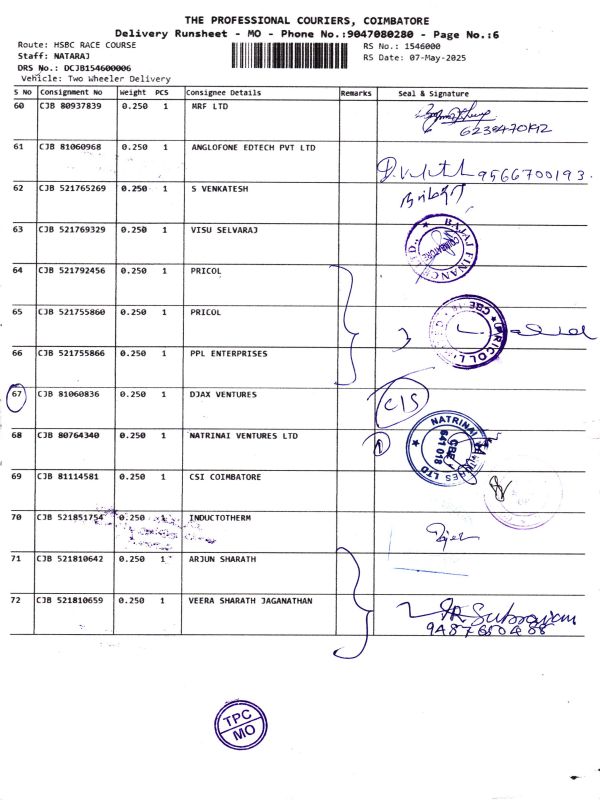 THE PROFESSIONAL COURIERS, COIMBATORE
Delivery Runsheet - MO - Phone No.:9047080280 - Page No.:6
Route: HSBC RACE COURSE RS No.: 1546000
Staff: NATARAJ RS Date: 07-May-2025
DRS No.: DCJB154600006
Vehicle: Two Wheeler Delivery
S No Consignment No Weight PCS Consignee Details Remarks Seal & Signature
60 CJB 80937839 0.250 1 MRF LTD
6238470192
61 CJB 81060968 0.250 1 ANGLOFONE EDTECH PVT LTD
9566700193
62 CJB 521765269 0.250 1 S VENKATESH
63 CJB 521769329 0.250 1 VISU SELVARAJ
BAJAJ FINANCE LTD.
COIMBATORE
64 CJB 521792456 0.250 1 PRICOL
65 CJB 521755860 0.250 1 PRICOL
PRICOL
CBE
66 CJB 521755866 0.250 1 PPL ENTERPRISES
67 CJB 81060836 0.250 1 DJAX VENTURES
C/S
68 CJB 80764340 0.250 1 NATRINAI VENTURES LTD
1
NATRINAI VENTURES LTD
CBE
641 018
69 CJB 81114581 0.250 1 CSI COIMBATORE
70 CJB 521851754 0.250 1 INDUCTOTHERM
71 CJB 521810642 0.250 1 ARJUN SHARATH
72 CJB 521810659 0.250 1 VEERA SHARATH JAGANATHAN
TPC
MO